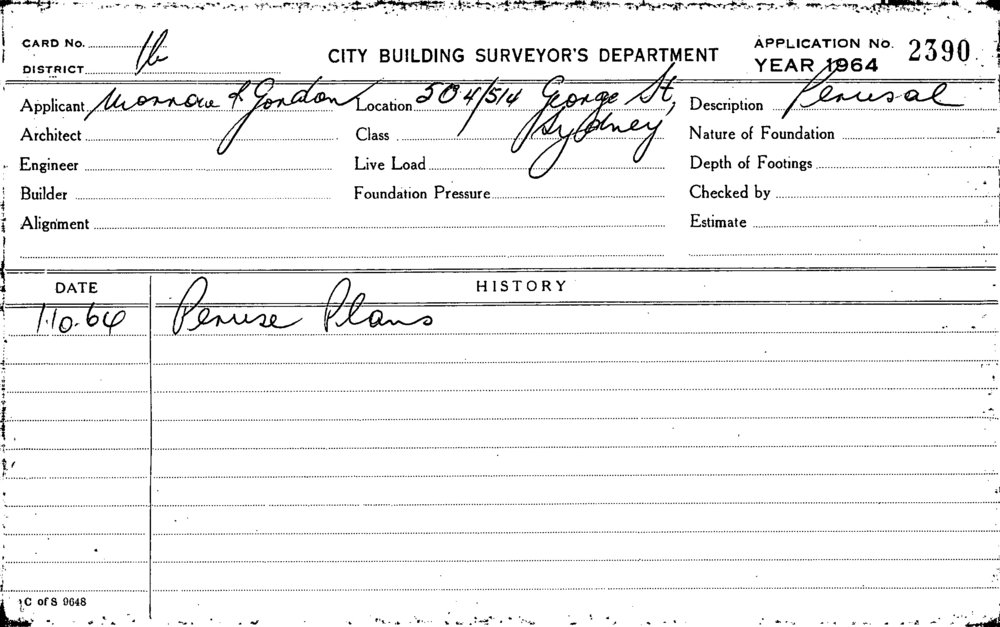 CARD No. 1b
DISTRICT
CITY BUILDING SURVEYOR'S DEPARTMENT
APPLICATION No. 2390
YEAR 1964
Applicant Morrow & Gordon Location 504/514 George St, Sydney Description Perusal
Architect Class Nature of Foundation
Engineer Live Load Depth of Footings
Builder Foundation Pressure Checked by
Alignment Estimate
DATE HISTORY
1.10.64 Peruse Plans
C of S 9648